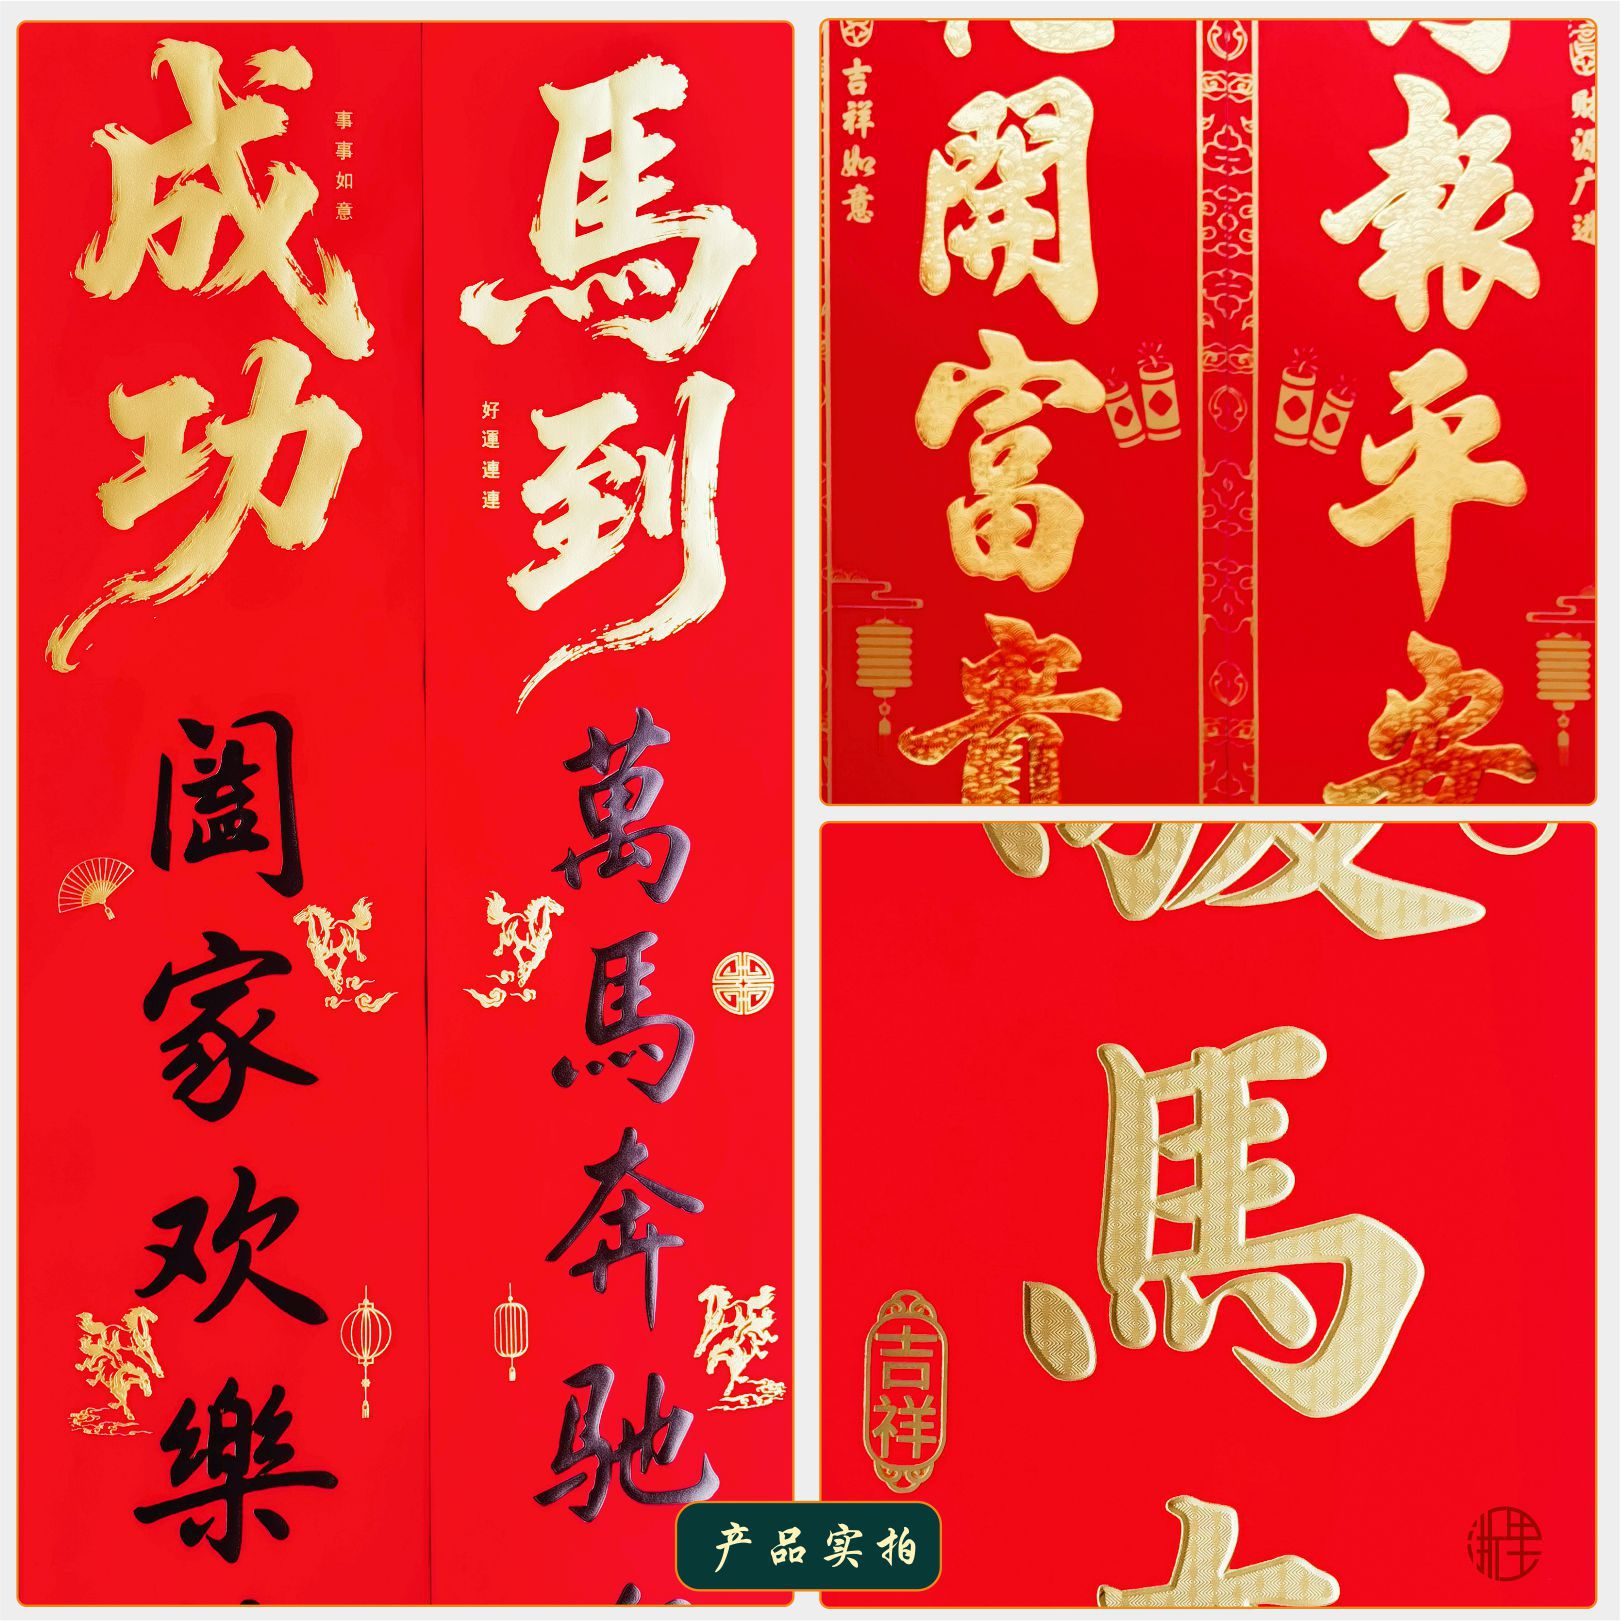 馬到
好運連連
萬馬奔馳
成功
事事如意
阖家欢樂
財源广进
報平安
開富貴
吉祥如意
馬
吉祥
产品实拍